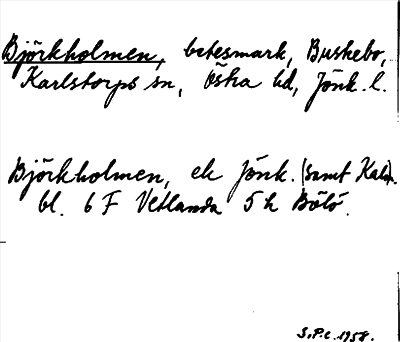 Björkholmen, betesmark, Buskebo,
Karlstorps sn, Östra hd, Jönk. l.
Björkholmen, ek Jönk. (samt Kalm).
bl. 6 F Vetlanda 5 h Bölö.
S.P.C. 1958.